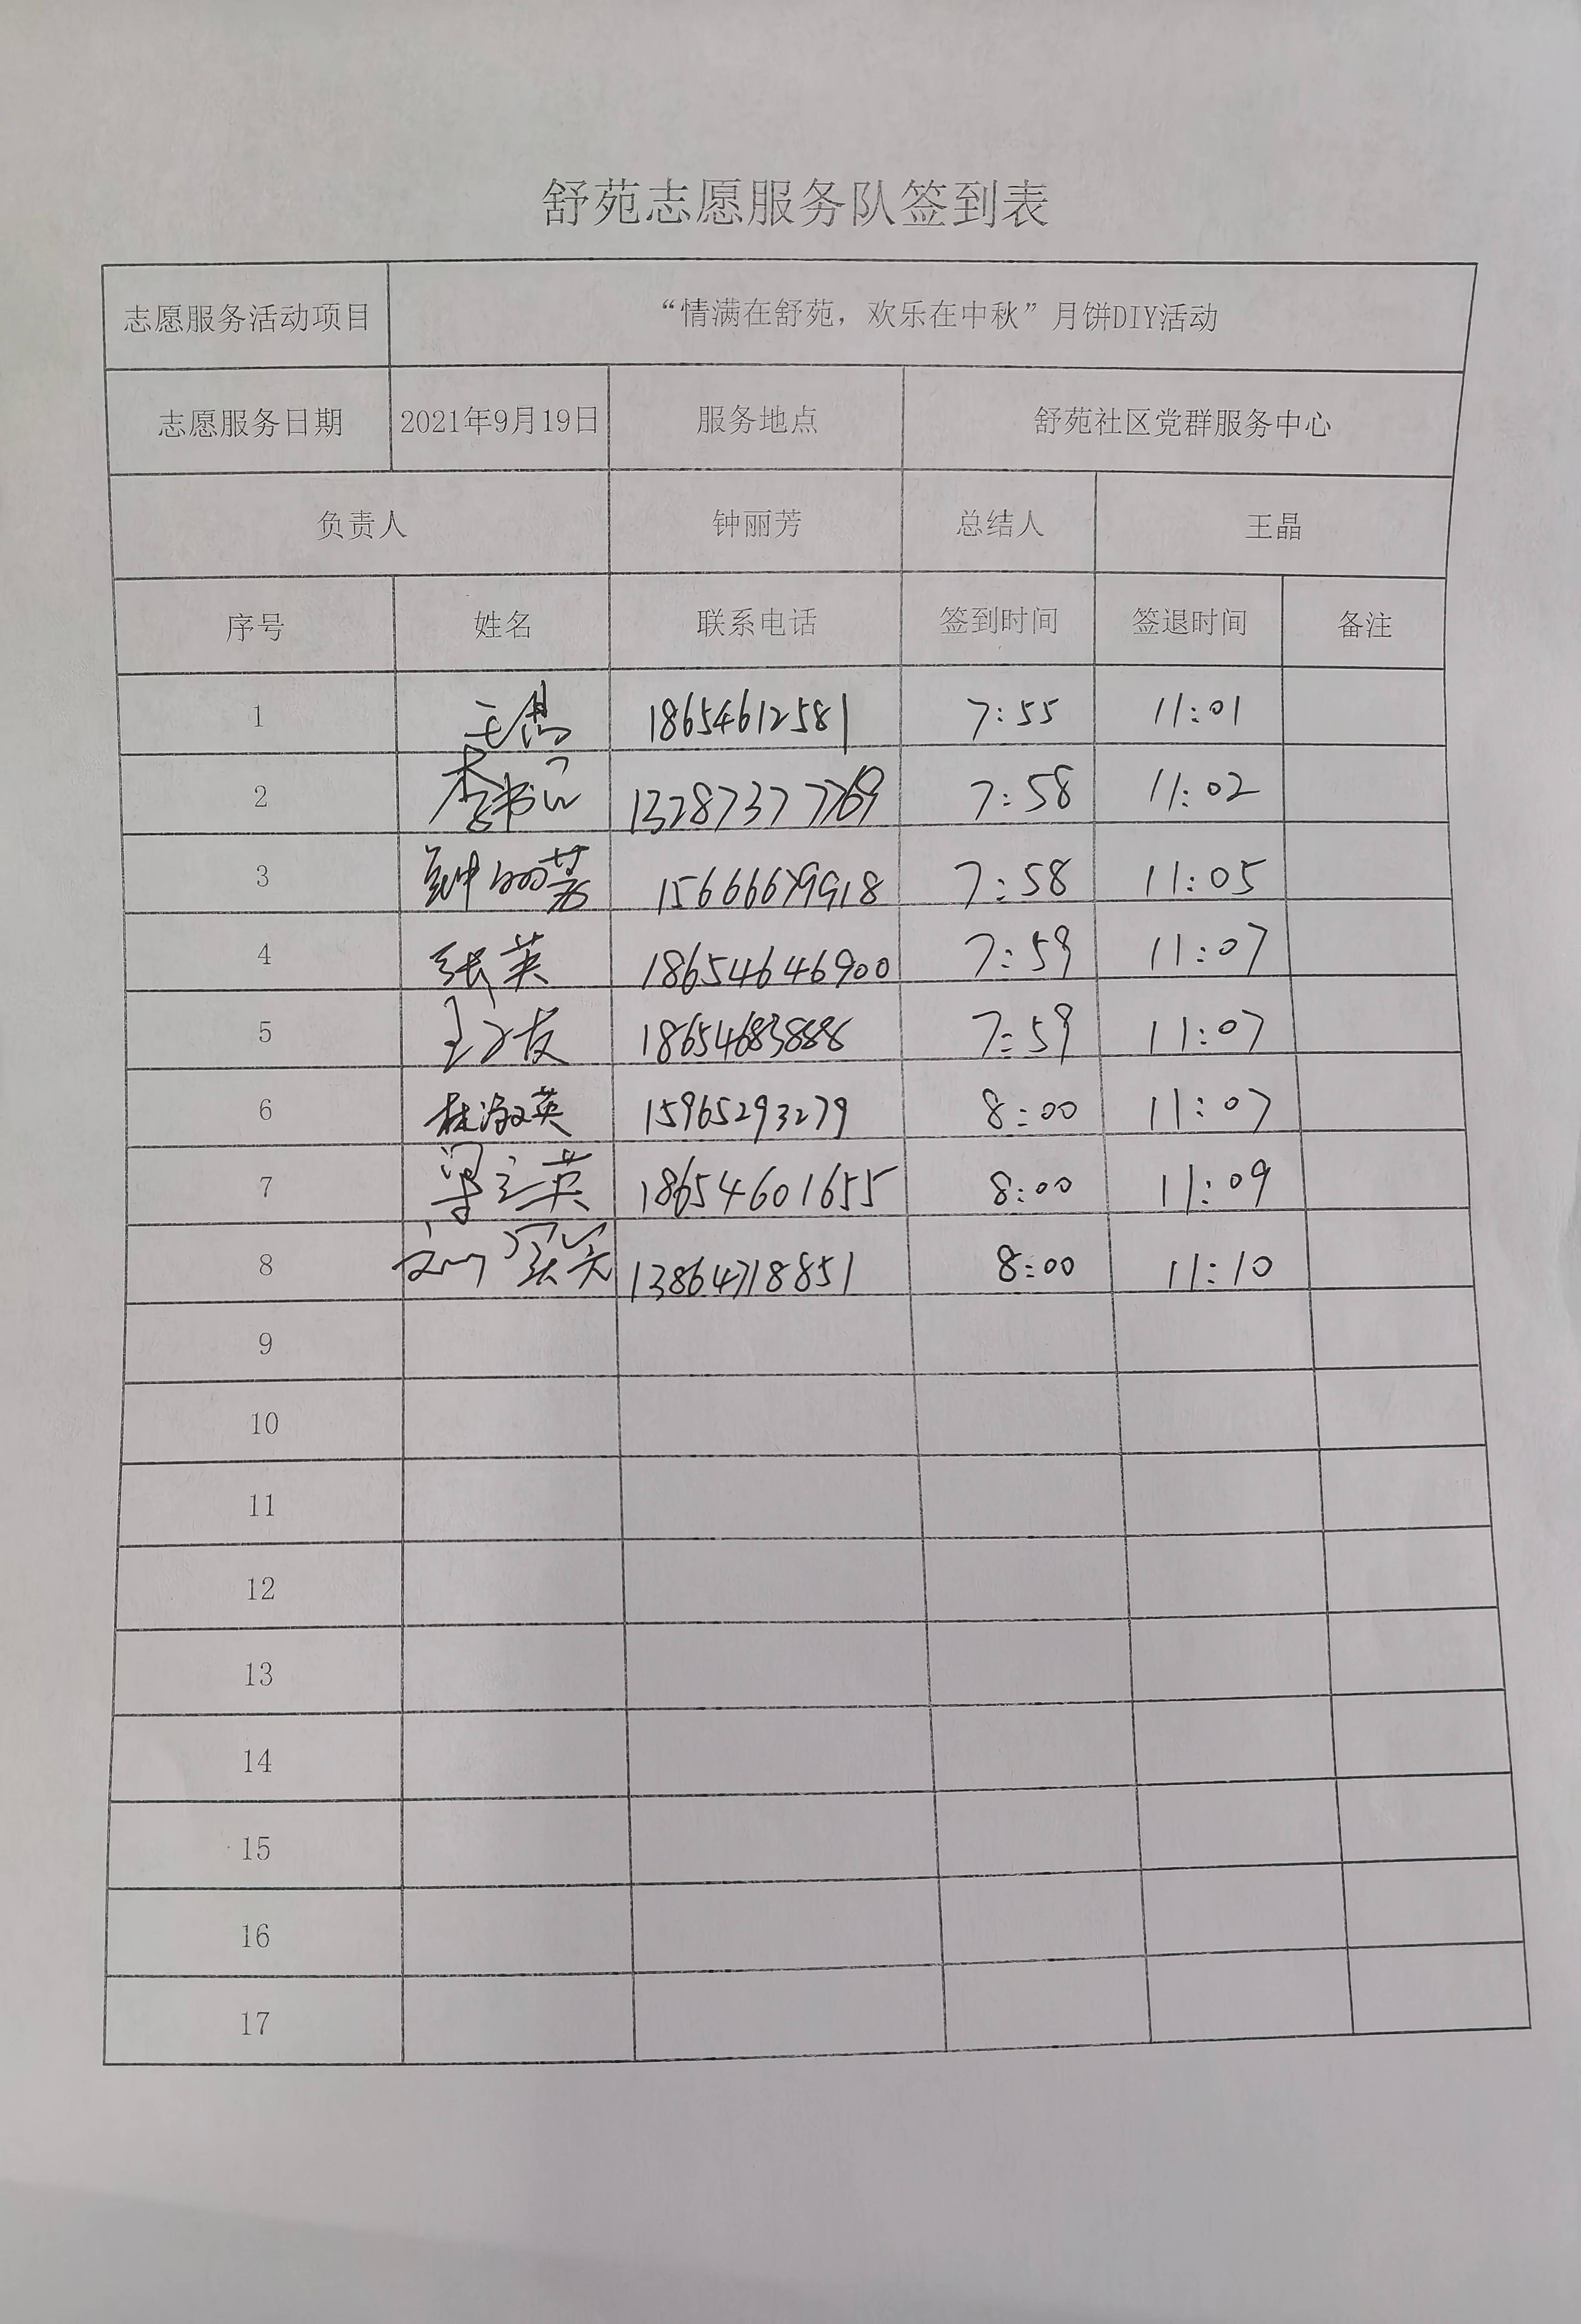 舒苑志愿服务队签到表
志愿服务活动项目 “情满在舒苑，欢乐在中秋”月饼DIY活动
志愿服务日期 2021年9月19日 服务地点 舒苑社区党群服务中心
负责人 钟丽芳 总结人 王晶
序号 姓名 联系电话 签到时间 签退时间 备注
1 18654612581 7:55 11:01
2 13287377769 7:58 11:02
3 钟丽芳 15666679918 7:58 11:05
4 张英 18654646900 7:59 11:07
5 18654683888 7:59 11:07
6 林淑英 15965293279 8:00 11:07
7 梁立英 18654601655 8:00 11:09
8 13864718851 8:00 11:10
9
10
11
12
13
14
15
16
17